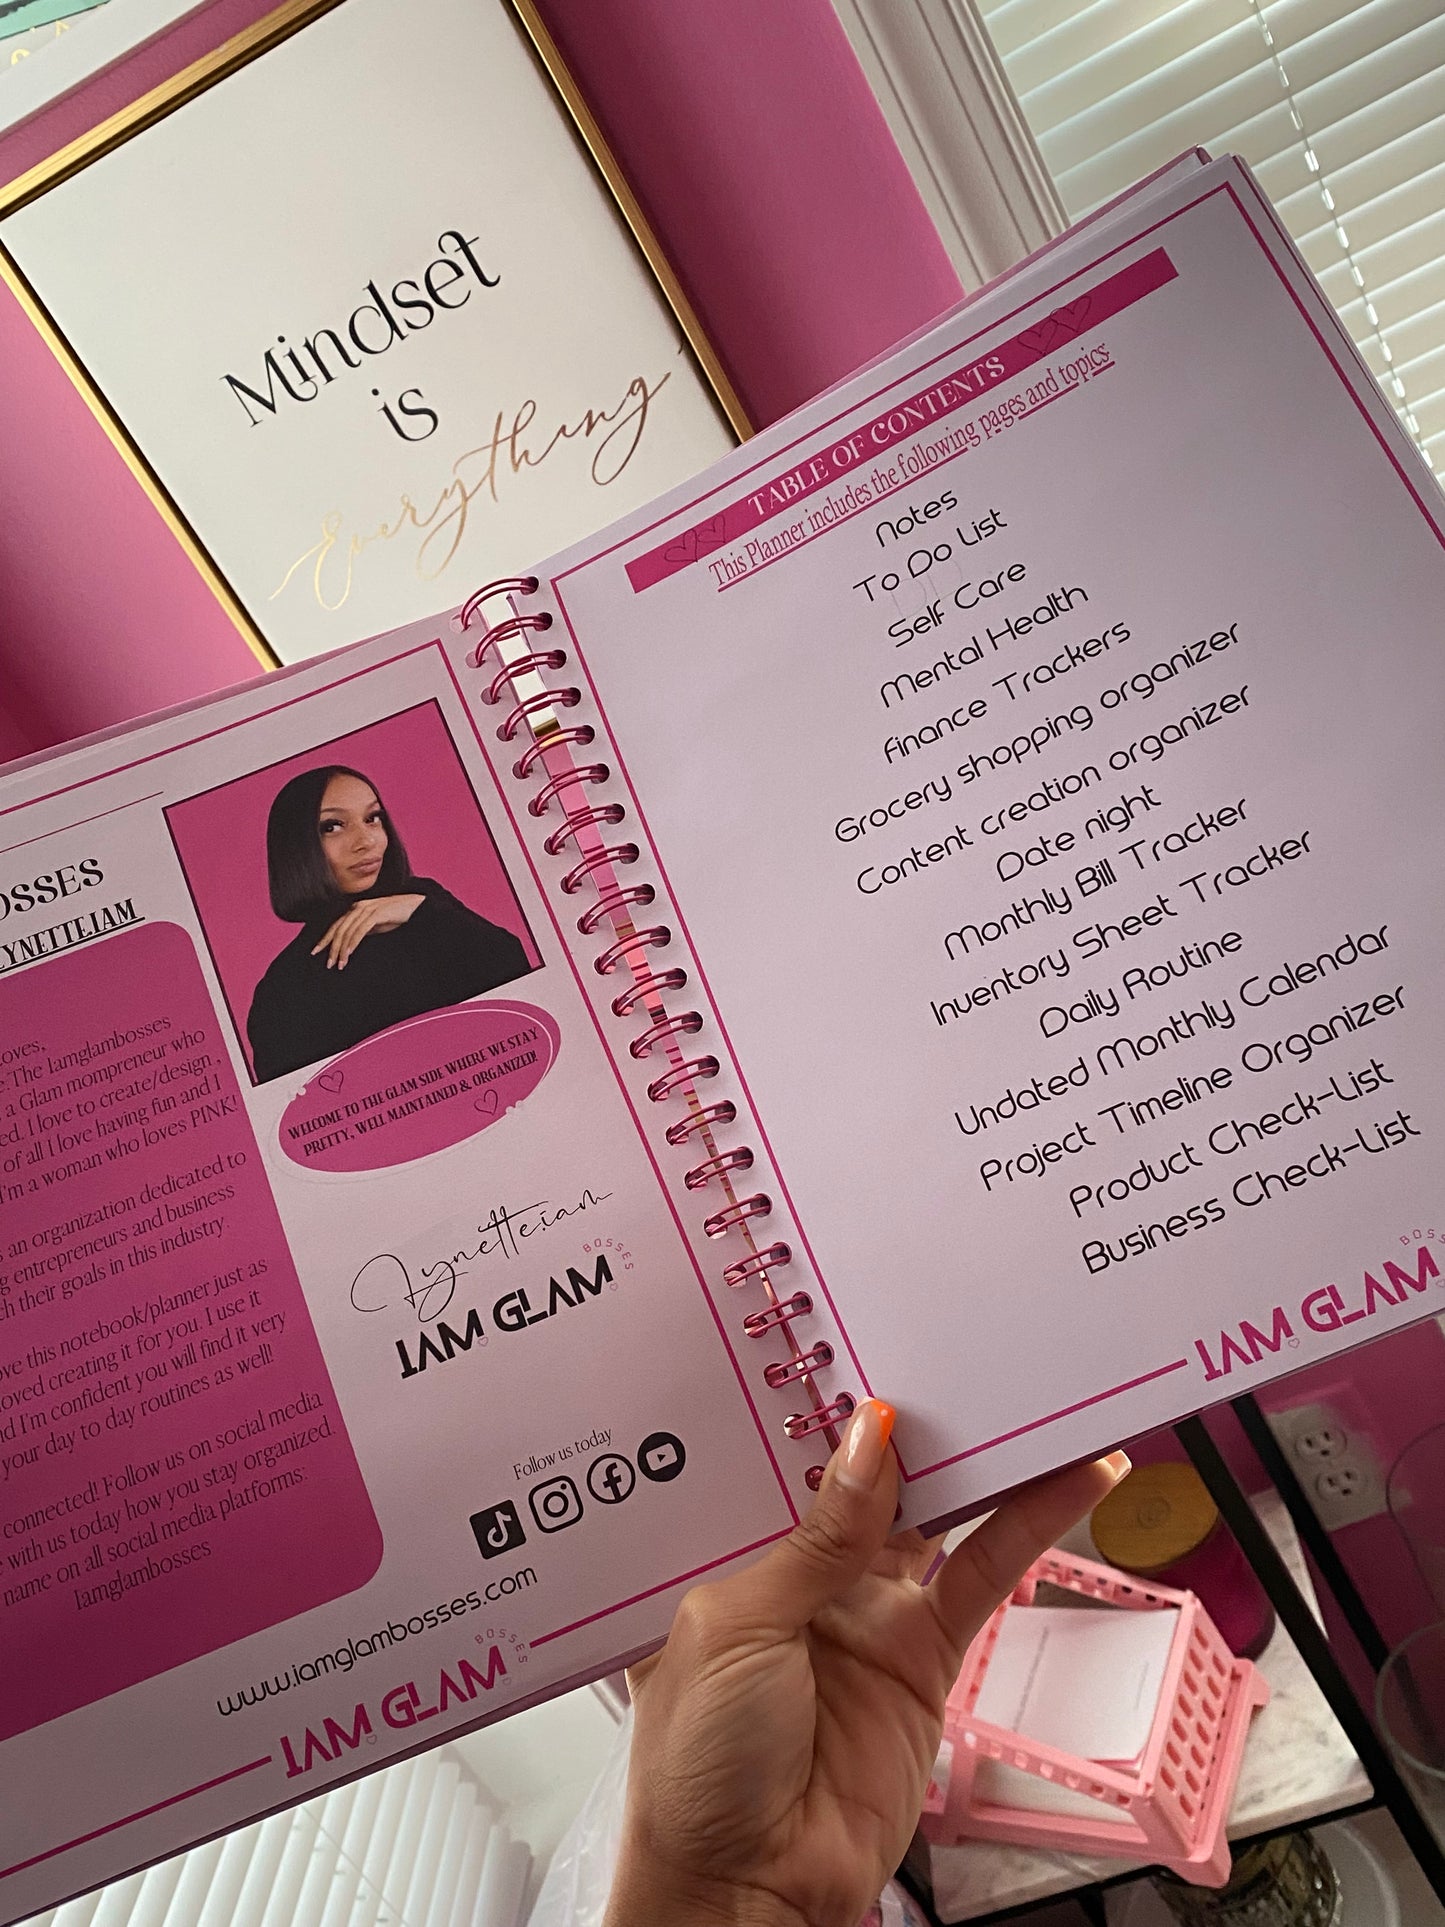 Mindset
is
Everything
OSSES
LYNETTE.IAM
The Iamglambosses
a Glam mompreneur who
I love to create/design ,
of all I love having fun and I
I'm a woman who loves PINK!
an organization dedicated to
entrepreneurs and business
their goals in this industry.
this notebook/planner just as
creating it for you. I use it
I'm confident you will find it very
your day to day routines as well!
connected! Follow us on social media
with us today how you stay organized.
name on all social media platforms:
Iamglambosses
WELCOME TO THE GLAM SIDE WHERE WE STAY
PRETTY, WELL MAINTAINED & ORGANIZED!
Lynette.iam
BOSSES
IAM GLAM
Follow us today
www.iamglambosses.com
BOSSES
IAM GLAM
TABLE OF CONTENTS
This Planner includes the following pages and topics:
Notes
To Do List
Self Care
Mental Health
Finance Trackers
Grocery shopping organizer
Content creation organizer
Date night
Monthly Bill Tracker
Inventory Sheet Tracker
Daily Routine
Undated Monthly Calendar
Project Timeline Organizer
Product Check-List
Business Check-List
IAM GLAM